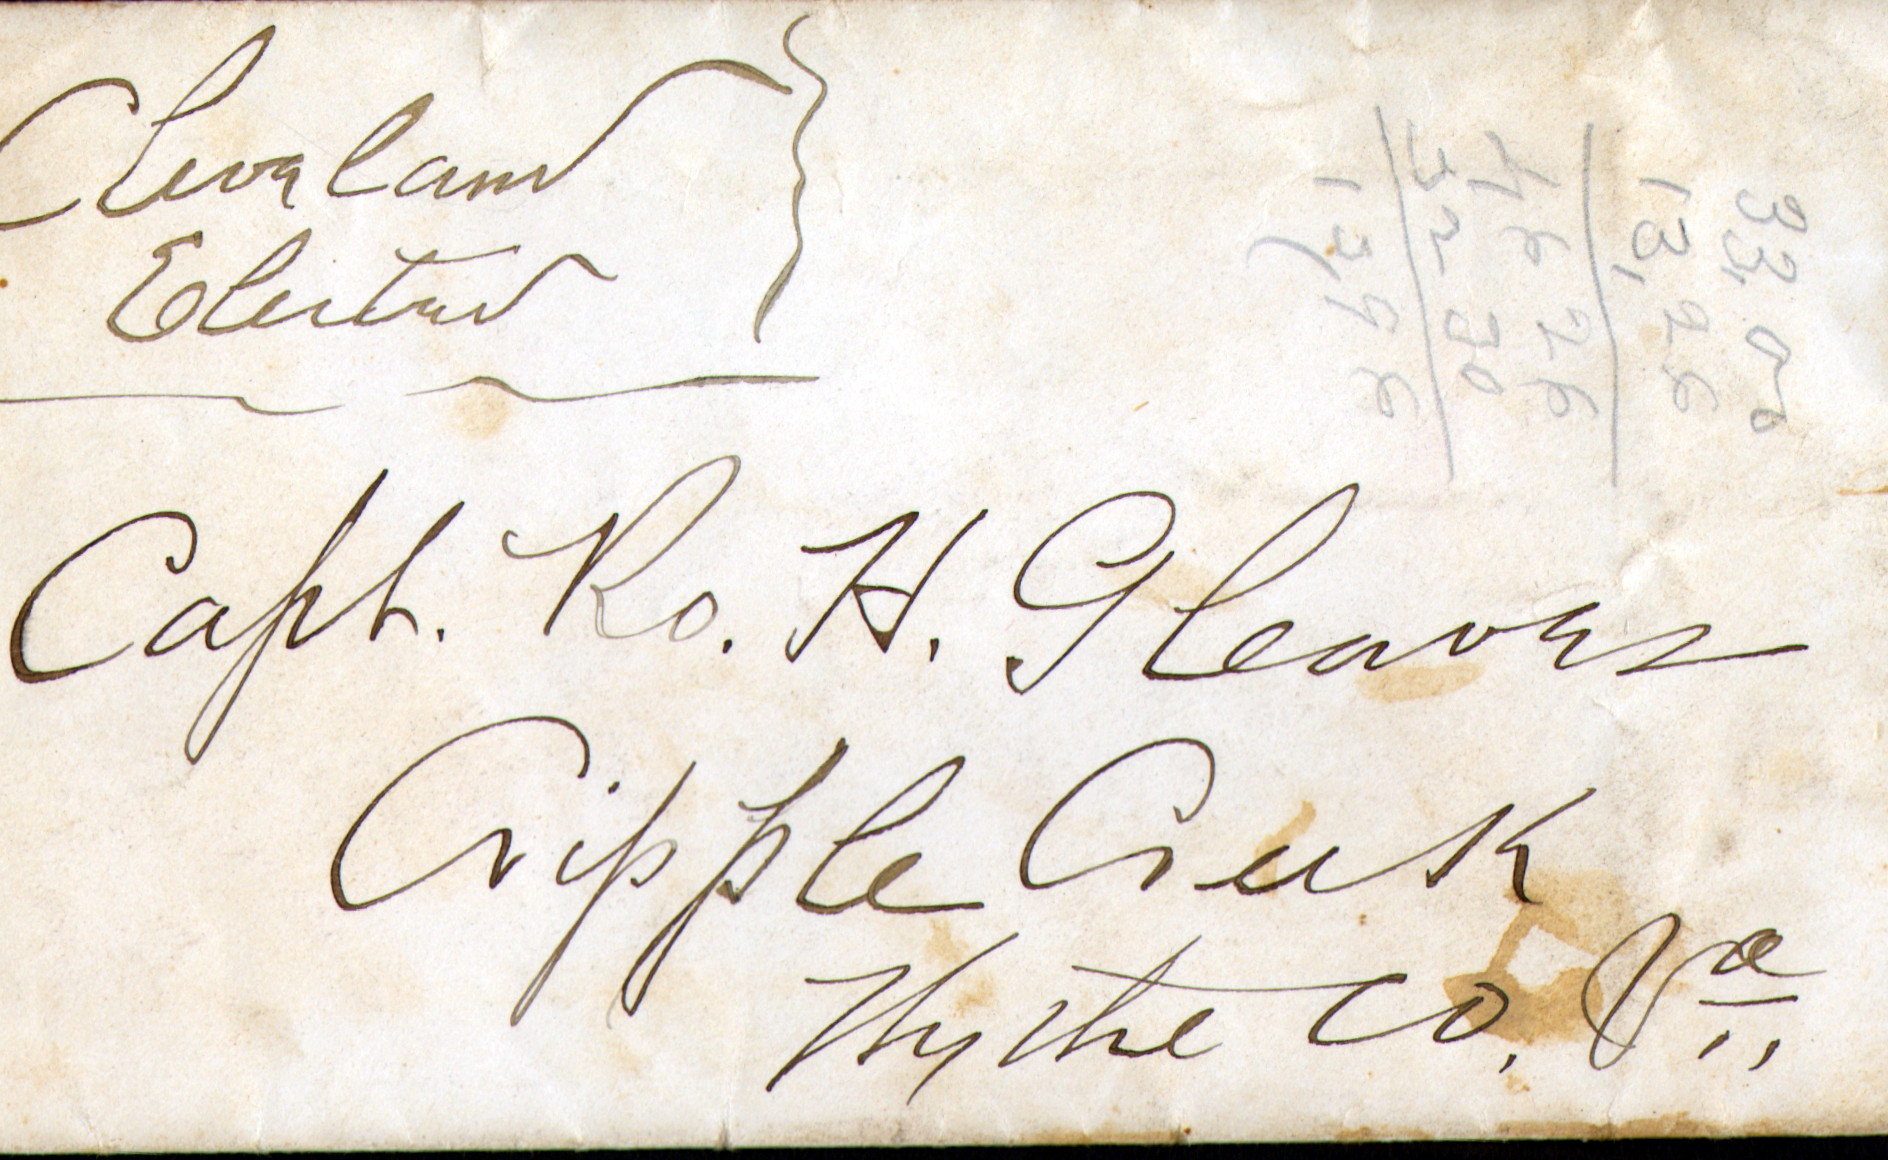 Cleveland
Elected
33 00
13,26
46 26
32 30
13 96
Capt. Ro. H. Gleaves
Cripple Creek
Wythe Co, Va